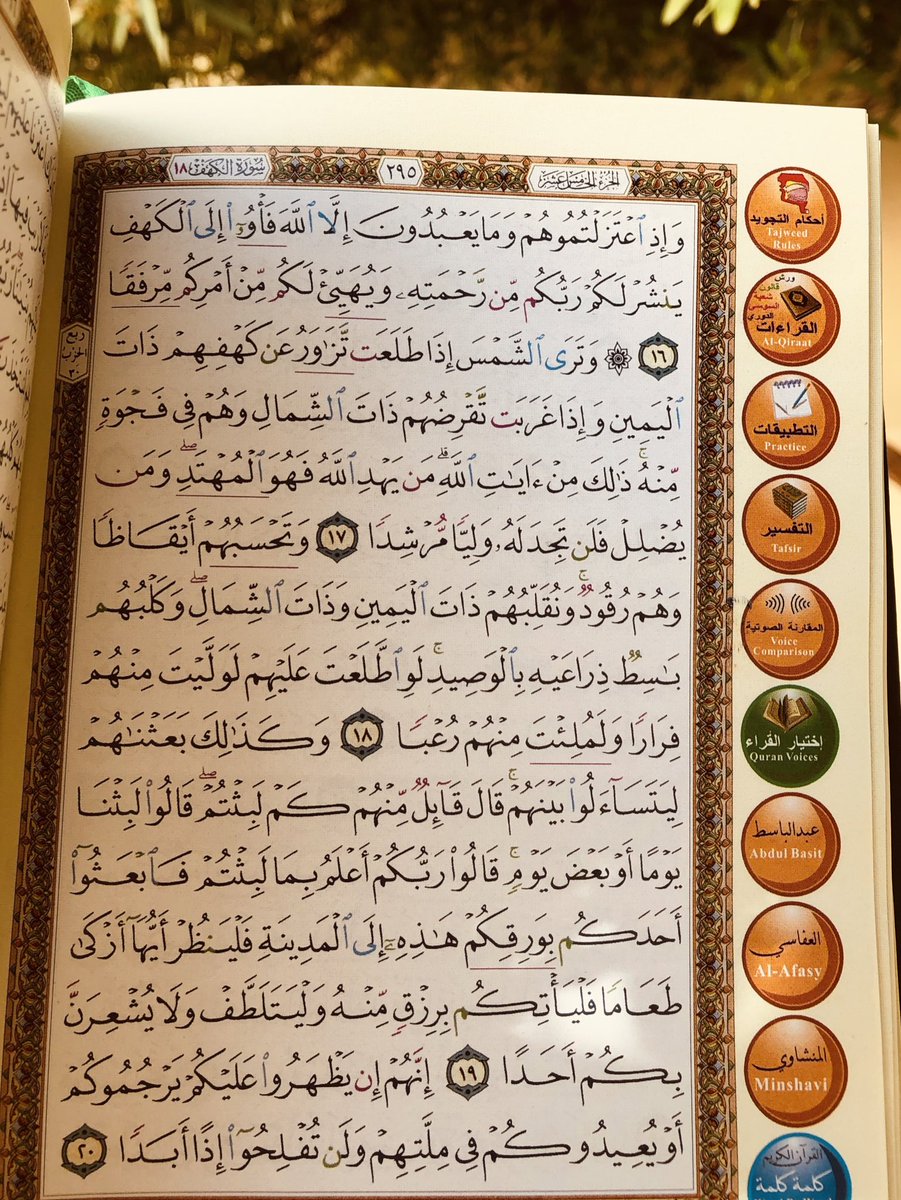 الجزء الخامس عشر
٢٩٥
سورة الكهف ١٨
وَإِذِ ٱعْتَزَلْتُمُوهُمْ وَمَا يَعْبُدُونَ إِلَّا ٱللَّهَ فَأْوُۥٓا۟ إِلَى ٱلْكَهْفِ
يَنشُرْ لَكُمْ رَبُّكُم مِّن رَّحْمَتِهِۦ وَيُهَيِّئْ لَكُم مِّنْ أَمْرِكُم مِّرْفَقًا
١٦ ۞ وَتَرَى ٱلشَّمْسَ إِذَا طَلَعَت تَّزَٰوَرُ عَن كَهْفِهِمْ ذَاتَ
ٱلْيَمِينِ وَإِذَا غَرَبَت تَّقْرِضُهُمْ ذَاتَ ٱلشِّمَالِ وَهُمْ فِى فَجْوَةٍ
مِّنْهُ ۚ ذَٰلِكَ مِنْ ءَايَٰتِ ٱللَّهِ ۗ مَن يَهْدِ ٱللَّهُ فَهُوَ ٱلْمُهْتَدِ ۖ وَمَن
يُضْلِلْ فَلَن تَجِدَ لَهُۥ وَلِيًّا مُّرْشِدًا ١٧ وَتَحْسَبُهُمْ أَيْقَاظًا
وَهُمْ رُقُودٌ ۚ وَنُقَلِّبُهُمْ ذَاتَ ٱلْيَمِينِ وَذَاتَ ٱلشِّمَالِ ۖ وَكَلْبُهُم
بَٰسِطٌ ذِرَاعَيْهِ بِٱلْوَصِيدِ ۚ لَوِ ٱطَّلَعْتَ عَلَيْهِمْ لَوَلَّيْتَ مِنْهُمْ
فِرَارًا وَلَمُلِئْتَ مِنْهُمْ رُعْبًا ١٨ وَكَذَٰلِكَ بَعَثْنَٰهُمْ
لِيَتَسَآءَلُوا۟ بَيْنَهُمْ ۚ قَالَ قَآئِلٌ مِّنْهُمْ كَمْ لَبِثْتُمْ ۖ قَالُوا۟ لَبِثْنَا
يَوْمًا أَوْ بَعْضَ يَوْمٍ ۚ قَالُوا۟ رَبُّكُمْ أَعْلَمُ بِمَا لَبِثْتُمْ فَٱبْعَثُوٓا۟
أَحَدَكُم بِوَرِقِكُمْ هَٰذِهِۦٓ إِلَى ٱلْمَدِينَةِ فَلْيَنظُرْ أَيُّهَآ أَزْكَىٰ
طَعَامًا فَلْيَأْتِكُم بِرِزْقٍ مِّنْهُ وَلْيَتَلَطَّفْ وَلَا يُشْعِرَنَّ
بِكُمْ أَحَدًا ١٩ إِنَّهُمْ إِن يَظْهَرُوا۟ عَلَيْكُمْ يَرْجُمُوكُمْ
أَوْ يُعِيدُوكُمْ فِى مِلَّتِهِمْ وَلَن تُفْلِحُوٓا۟ إِذًا أَبَدًا ٢٠
ربع
الحزب
٣٠
أحكام التجويد
Tajweed
Rules
ورش
قالون
شعبة
السوسي
الدوري
القراءات
Al-Qiraat
التطبيقات
Practice
التفسير
Tafsir
المقارنة الصوتية
Voice
Comparison
إختيار القراء
Quran Voices
عبدالباسط
Abdul Basit
العفاسي
Al-Afasy
المنشاوي
Minshavi
القرآن الكريم
كلمة كلمة